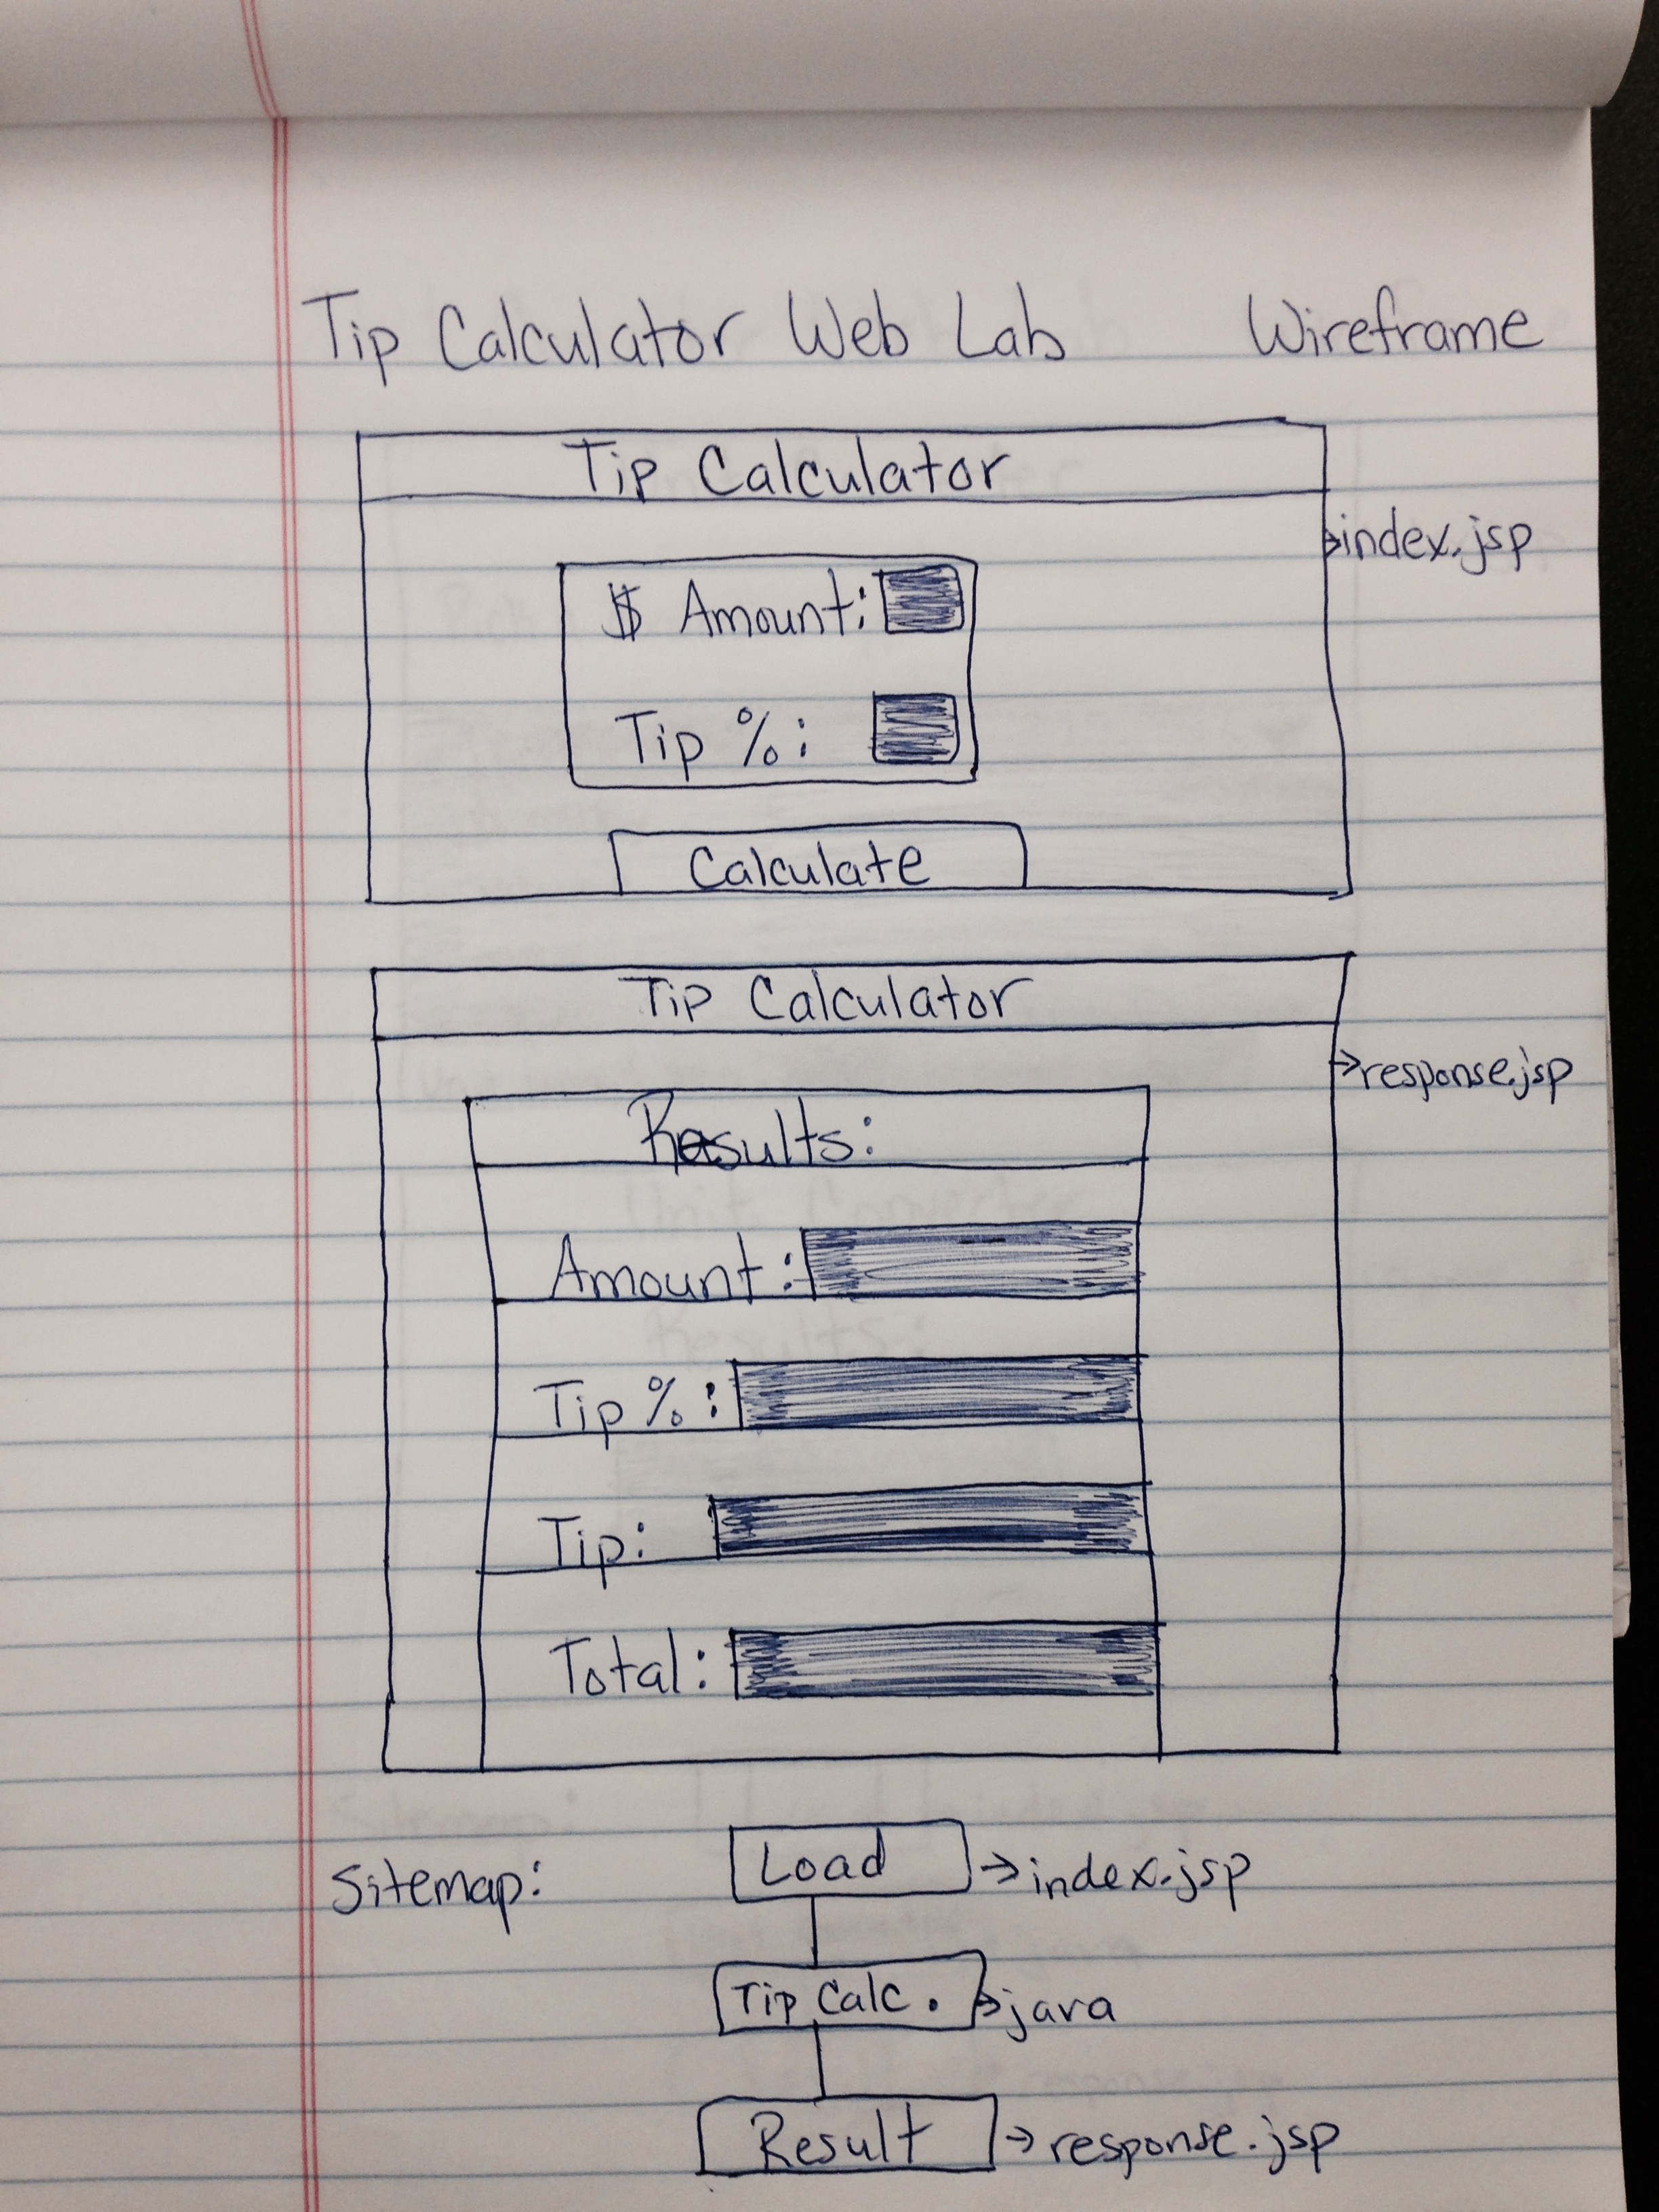 Tip Calculator Web Lab Wireframe
Tip Calculator
index.jsp
$ Amount:
Tip %:
Calculate
Tip Calculator
response.jsp
Results:
Amount:
Tip %:
Tip:
Total:
Sitemap: Load → index.jsp
Tip Calc. → java
Result → response.jsp